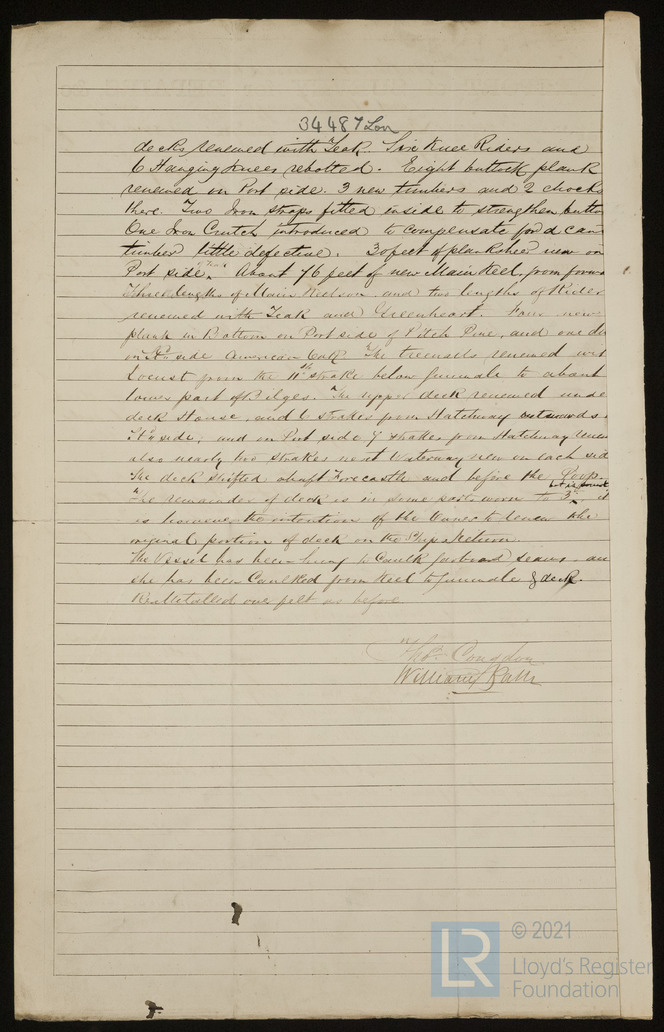 34487 Lon
decks renewed with Teak. Six Knee Riders and
6 Hanging Knees rebolted. Eight buttock plank
renewed on Port side. 3 new timbers and 2 chocks
there. Two Iron straps fitted inside to strengthen butto
One Iron Crutch introduced to compensate for a can
timber little defective. 30 feet of planksheer new on
Port side. About 76 feet of new Main Keel, from forwa
Three lengths of Main Keelson and two lengths of Rider
renewed with Teak and Greenheart. Four new
plank in Bottom on Port side of Pitch Pine, and one do
on St side American Oak. The treenails renewed with
Locust from the 11th strake below gunwale to about
lower part of Bilges. The upper deck renewed unde
deck House, and 6 strakes from Hatchway outwards
St side, and on Port side 7 strakes from Hatchway
also nearly two strakes next Waterway new on each sid
The deck shifted abaft Forecastle and before the Poop.
but is sound
The remainder of deck is in some parts worn to 3" it
is however the intention of the Owner to renew the
original portion of deck on the Ships Return.
The Vessel has been hung to Caulk garboard seams and
she has been Caulked from Keel to gunwale & deck.
ReMetalled over felt as before
Thos. Congdon
William
© 2021
Lloyd's Register
Foundation
LR